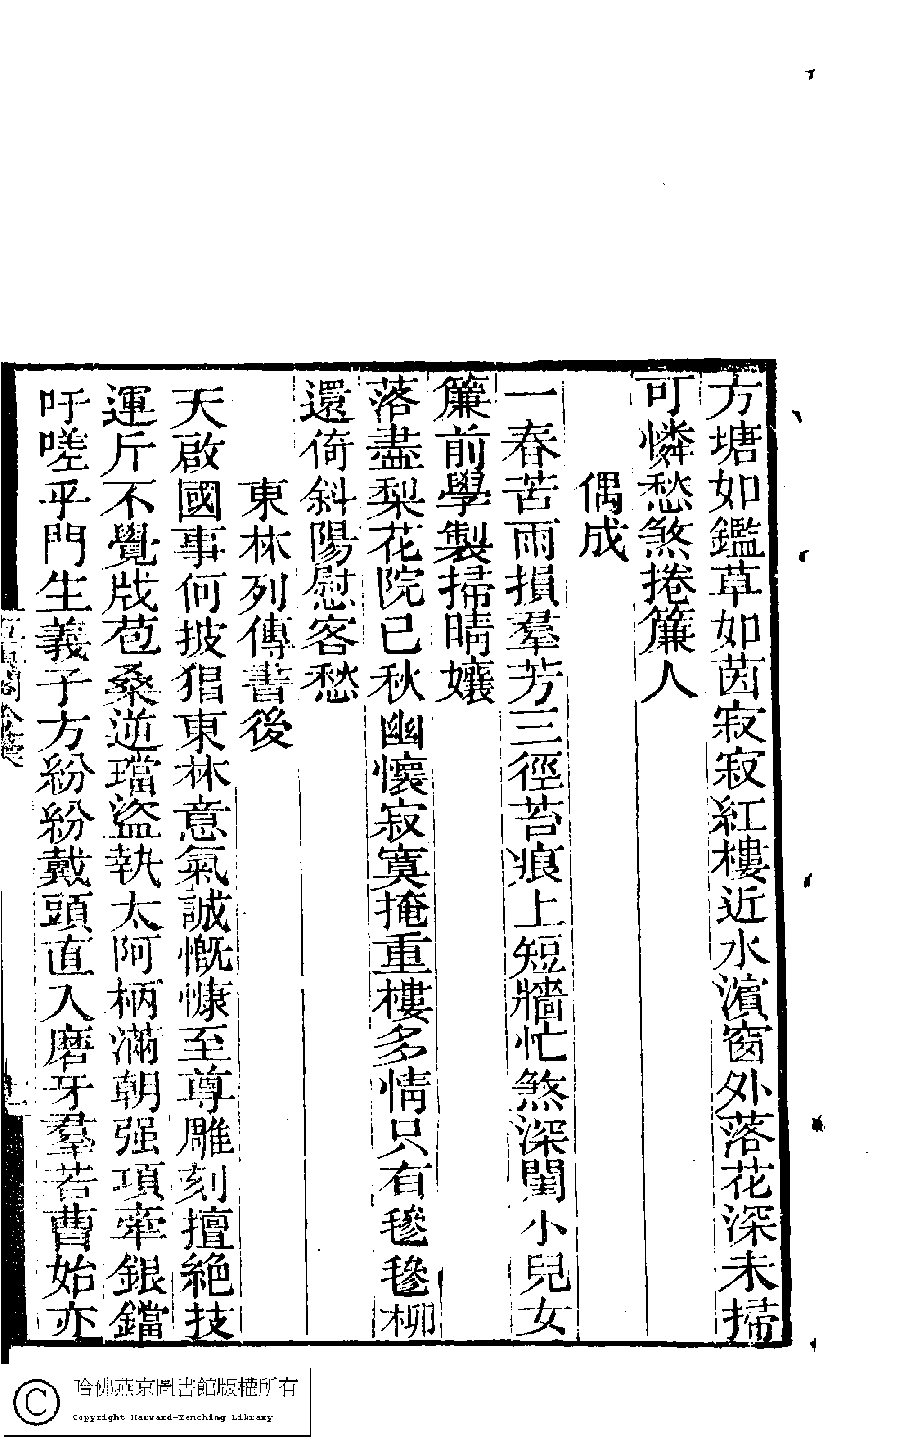 方塘如鑑草如茵寂寂紅樓近水濵窗外落花深未掃
可憐愁煞捲簾人
偶成
一春苦雨損羣芳三徑苔痕上短牆忙煞深閨小兒女
簾前學製掃晴孃
落盡梨花院已秋幽懷寂寞掩重樓多情只有毿毿柳
還倚斜陽慰客愁
東林列傳書後
天啟國事何披猖東林意氣誠慨慷至尊雕刻擅絶技
運斤不覺戕苞桑逆璫盜執太阿柄滿朝强項牽銀鐺
吁嗟乎門生義子方紛紛戴頭直入磨牙羣若曹始亦
哈佛燕京圖書館版權所有
Copyright Harvard-Yenching Library